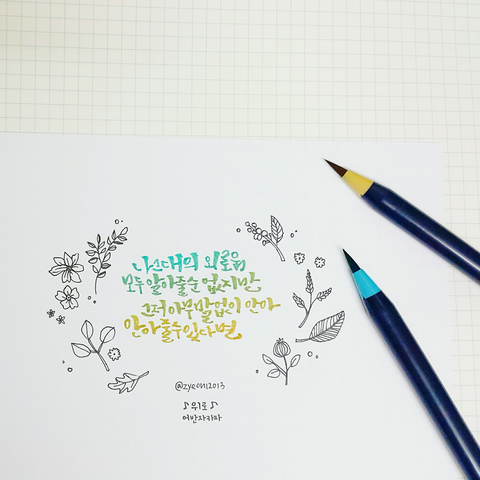 나 그대의 외로움
모두 알아줄 수 없지만
그저 아무 말 없이 안아
안아줄 수 있다면
@zyeom2013
♪위로♪
어반자카파